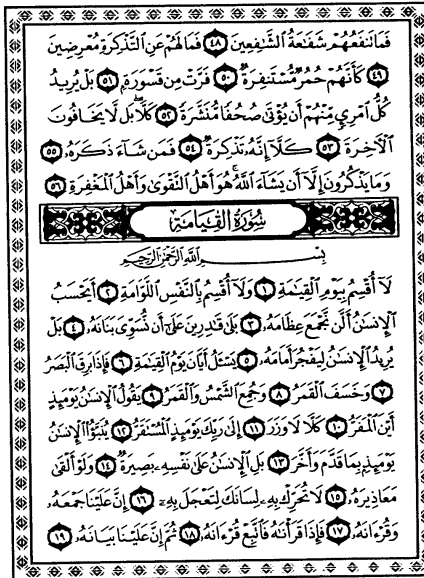 فَمَا تَنفَعُهُمْ شَفَٰعَةُ ٱلشَّٰفِعِينَ ٤٨ فَمَا لَهُمْ عَنِ ٱلتَّذْكِرَةِ مُعْرِضِينَ
٤٩ كَأَنَّهُمْ حُمُرٌ مُّسْتَنفِرَةٌ ٥٠ فَرَّتْ مِن قَسْوَرَةٍ ٥١ بَلْ يُرِيدُ
كُلُّ ٱمْرِئٍ مِّنْهُمْ أَن يُؤْتَىٰ صُحُفًا مُّنَشَّرَةً ٥٢ كَلَّا بَل لَّا يَخَافُونَ
ٱلْءَاخِرَةَ ٥٣ كَلَّا إِنَّهُۥ تَذْكِرَةٌ ٥٤ فَمَن شَآءَ ذَكَرَهُۥ ٥٥
وَمَا يَذْكُرُونَ إِلَّا أَن يَشَآءَ ٱللَّهُ هُوَ أَهْلُ ٱلتَّقْوَىٰ وَأَهْلُ ٱلْمَغْفِرَةِ ٥٦
سُورَةُ القِيَامَة
بِسْمِ ٱللَّهِ ٱلرَّحْمَٰنِ ٱلرَّحِيمِ
لَآ أُقْسِمُ بِيَوْمِ ٱلْقِيَٰمَةِ ١ وَلَآ أُقْسِمُ بِٱلنَّفْسِ ٱللَّوَّامَةِ ٢ أَيَحْسَبُ
ٱلْإِنسَٰنُ أَلَّن نَّجْمَعَ عِظَامَهُۥ ٣ بَلَىٰ قَٰدِرِينَ عَلَىٰٓ أَن نُّسَوِّىَ بَنَانَهُۥ ٤ بَلْ
يُرِيدُ ٱلْإِنسَٰنُ لِيَفْجُرَ أَمَامَهُۥ ٥ يَسْـَٔلُ أَيَّانَ يَوْمُ ٱلْقِيَٰمَةِ ٦ فَإِذَا بَرِقَ ٱلْبَصَرُ
٧ وَخَسَفَ ٱلْقَمَرُ ٨ وَجُمِعَ ٱلشَّمْسُ وَٱلْقَمَرُ ٩ يَقُولُ ٱلْإِنسَٰنُ يَوْمَئِذٍ
أَيْنَ ٱلْمَفَرُّ ١٠ كَلَّا لَا وَزَرَ ١١ إِلَىٰ رَبِّكَ يَوْمَئِذٍ ٱلْمُسْتَقَرُّ ١٢ يُنَبَّؤُا۟ ٱلْإِنسَٰنُ
يَوْمَئِذٍۭ بِمَا قَدَّمَ وَأَخَّرَ ١٣ بَلِ ٱلْإِنسَٰنُ عَلَىٰ نَفْسِهِۦ بَصِيرَةٌ ١٤ وَلَوْ أَلْقَىٰ
مَعَاذِيرَهُۥ ١٥ لَا تُحَرِّكْ بِهِۦ لِسَانَكَ لِتَعْجَلَ بِهِۦٓ ١٦ إِنَّ عَلَيْنَا جَمْعَهُۥ
وَقُرْءَانَهُۥ ١٧ فَإِذَا قَرَأْنَٰهُ فَٱتَّبِعْ قُرْءَانَهُۥ ١٨ ثُمَّ إِنَّ عَلَيْنَا بَيَانَهُۥ ١٩